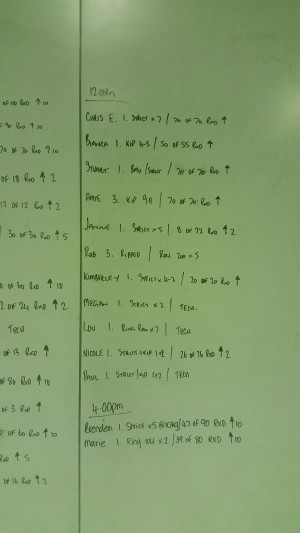 of 10 RXD ↑ 10
20 of 30 RXD ↑ 10
of 18 RXD ↑ 2
12 of 12 RXD ↑ 2
30 of 30 RXD ↑ 5
of 60 RXD ↑ 18
2 of 24 RXD ↑ 2
TECH
of 15 RXD ↑
of 80 RXD ↑ 10
of 3 RXD ↑
of 60 RXD ↑ 10
RXD ↑ 5
of 16 RXD ↑ 2
12:00pm
CHRIS E. 1. STRICT x 7 / 70 OF 70 RXD ↑
BIANCA 1. KIP 4-5 / 50 OF 55 RXD ↑
STUART 1. / STRICT / 70 OF 70 RXD ↑
3. KIP 9-11 / 70 OF 70 RXD ↑
1. STRICT x 5 / 8 OF 22 RXD ↑ 2
ROB 3. RIPPED / ROW 200 x 5
KIMBERLEY 1. STRICT x 2-3 / 20 OF 20 RXD ↑
MEGAN 1. STRICT x 2 / TECH.
LOU 1. RING ROW x 7 / TECH
NICOLE 1. STRICT 1 KIP 1+2 / 26 OF 76 RXD ↑ 2
PAUL 1. STRICT/KIP 1+2 / TECH
4:00pm
Brenden 1. Strict x5 @ 10kg / 47 of 90 RXD ↑ 10
marie 1. Ring row x 2 / 39 of 80 RXD ↑ 10